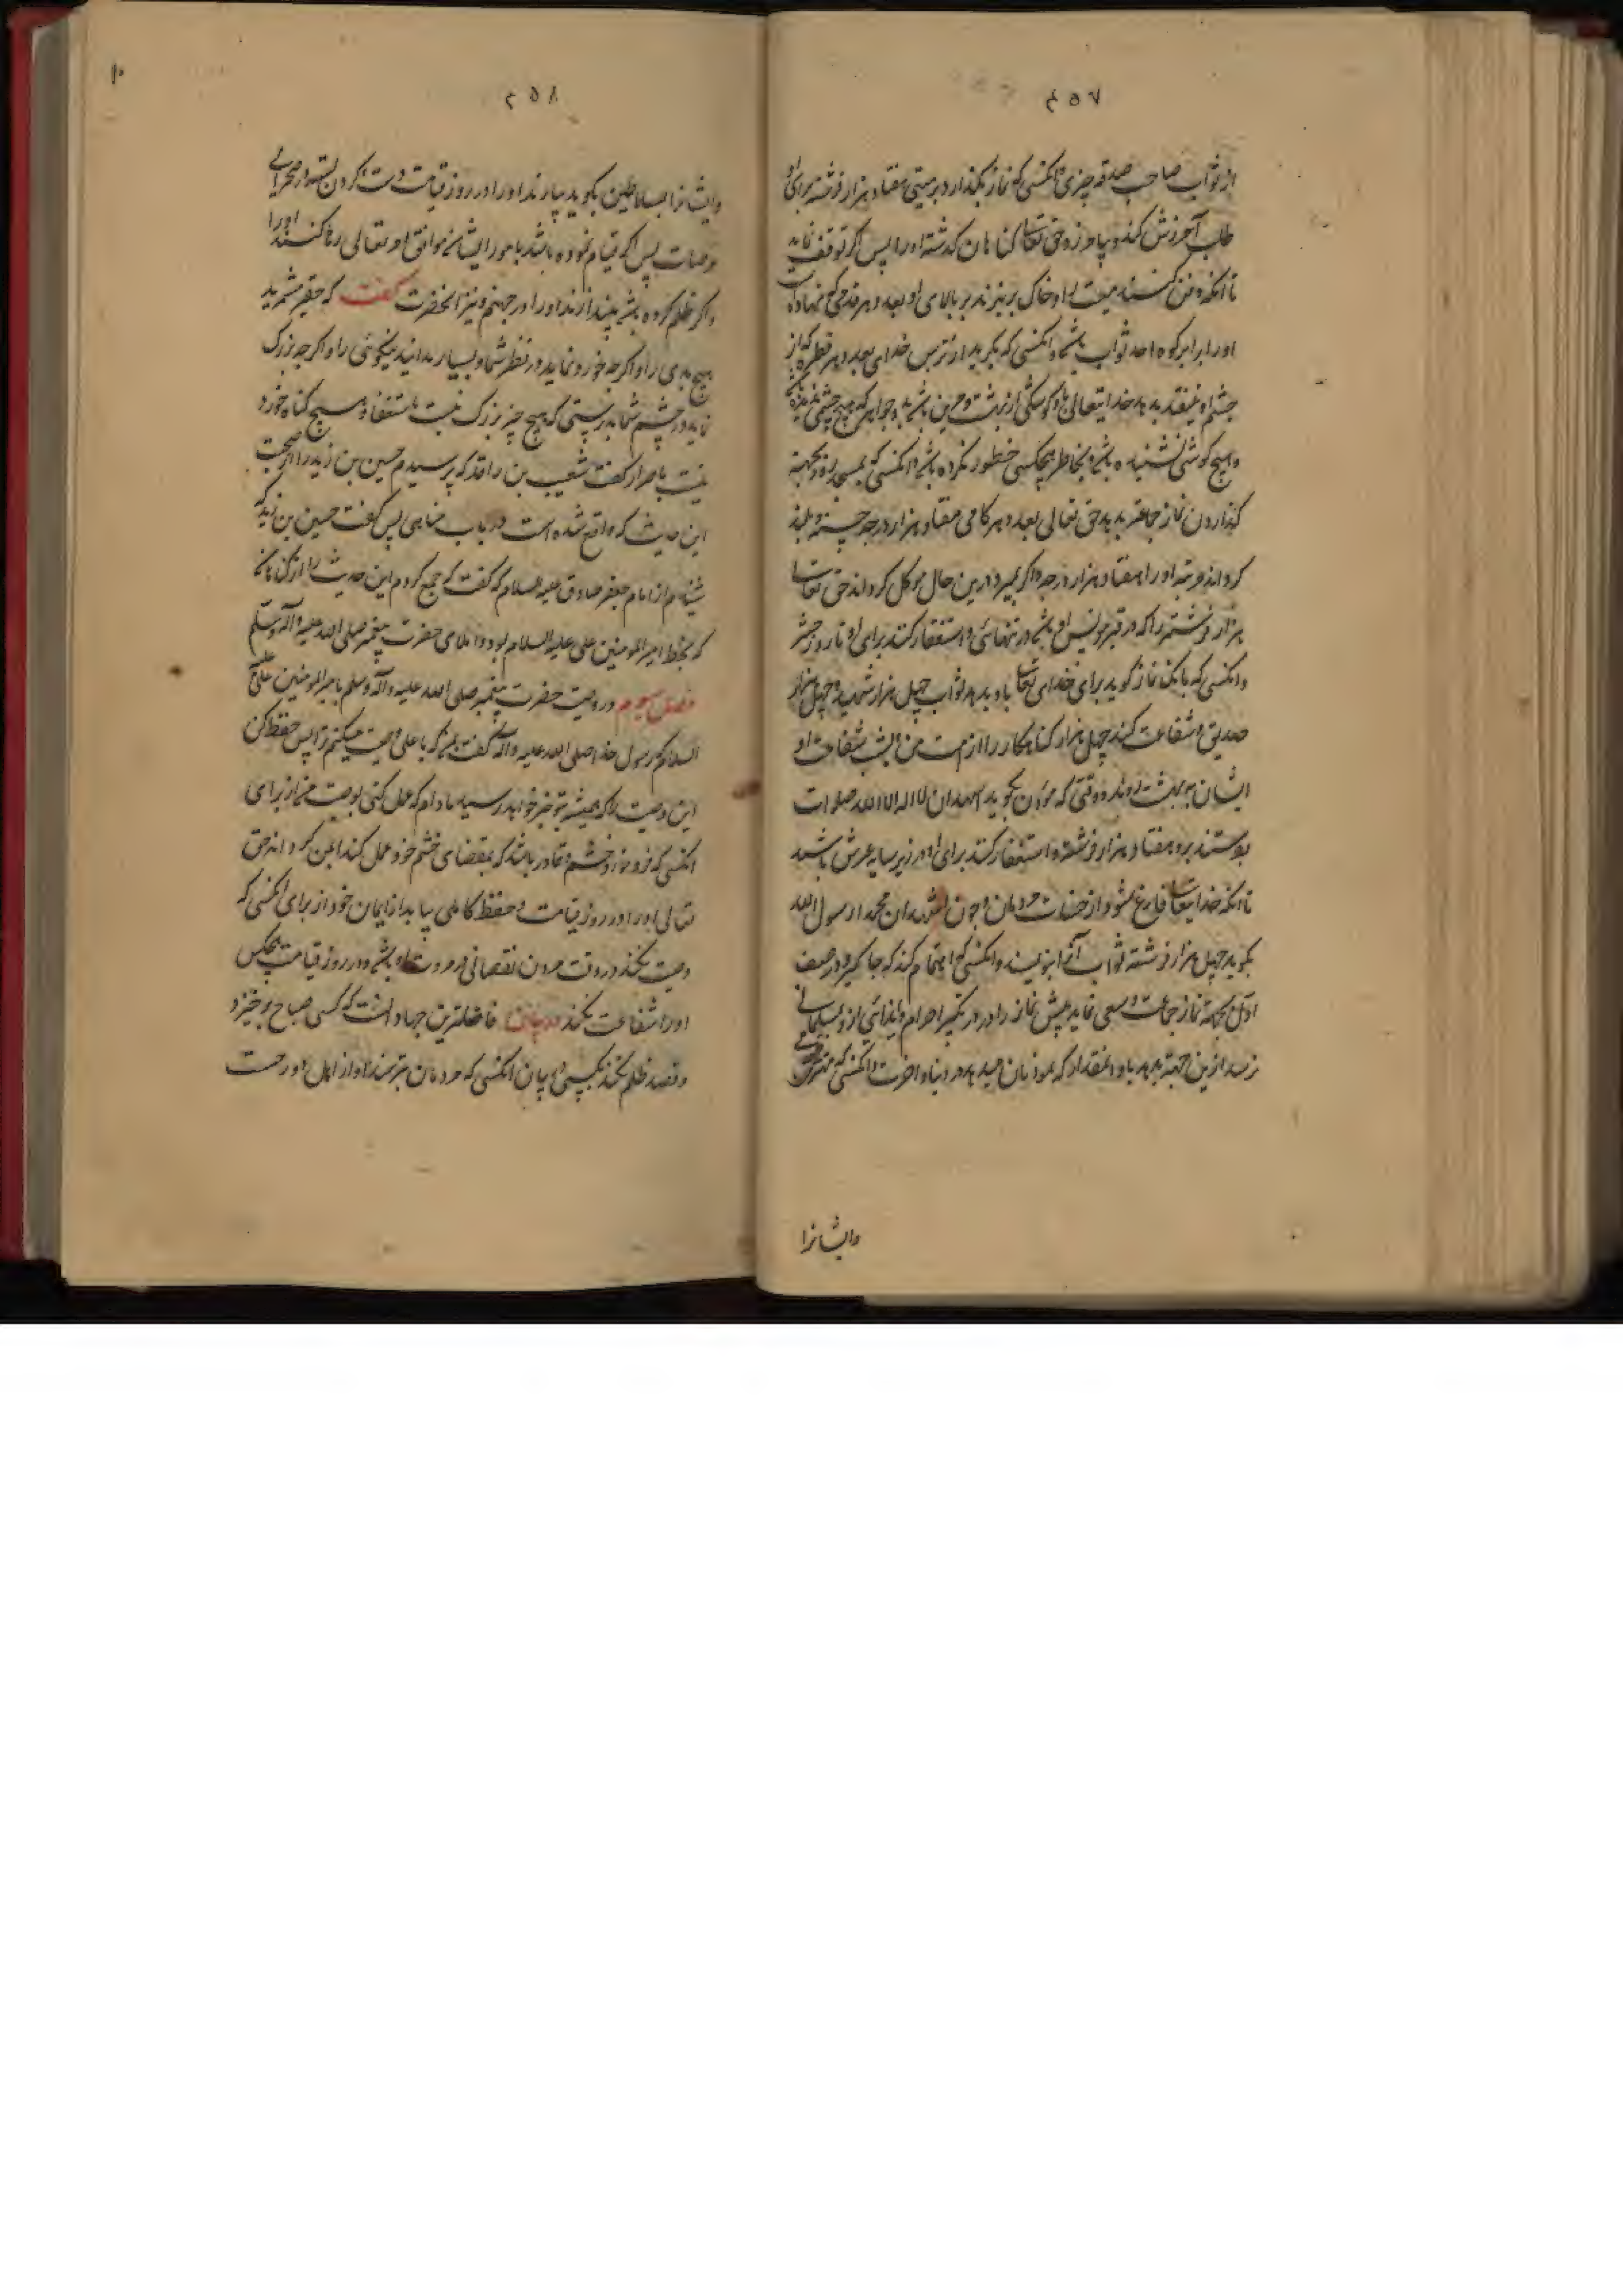 ۲۵۷
از ثواب صاحب صدقه چیزی و انکسی که نماز بگذارد بر میتی هفتاد هزار فرشته برای او
طلب آمرزش کنند و بیامرزد حق تعالی کناهان کذشته او را پس اگر توقف نماید
تا آنکه دفن کنند میت را و خاک بریزند بر بالای او بعدد هر قدمی که نهاده
او را برابر کوه احد ثواب باشد و انکسی که بگرید از ترس خدای بعدد هر قطره که از
چشم او بیفتد بدهد خدایتعالی باو کوشکی از بهشت مزین باشد بدر و جواهر که هیچ چشمی ندیده
و هیچ کوشی نشنیده باشد و بخاطر هیچکسی خطور نکرده باشد و انکسی که بمسجد رود بجهة
کذاردن نماز جماعة بدهد حق تعالی بعدد هر کامی هفتاد هزار درجه حسنه و بلند
کرداند مرتبه او را هفتاد هزار درجه و اگر بمیرد درین حال موکل کرداند حق تعالی
هزار فرشته را که در قبر مونس او باشند در تنهائی و استغفار کنند برای او تا روز حشر
و انکسی که بانک نماز کوید برای خدای تعالی باو بدهد ثواب چهل هزار شهید و چهل هزار
صدیق و شفاعت کند چهل هزار کناهکار را از امت من پس بشفاعت او
ایشان به بهشت روند و وقتی که مؤذن بگوید اشهد ان لا اله الا الله صلوات
بفرستند برو هفتاد هزار فرشته و استغفار کنند برای او و در زیر سایه عرش باشد
تا آنکه خدایتعالی فارغ شود از حساب مردمان و چون اشهد ان محمدا رسول الله
بگوید چهل هزار فرشته ثواب آنرا بنویسند و انکسی که اهتمام کند که جا گیرد در صف
اول بجهة نماز جماعت و سعی نماید پیش نماز را در تکبیر احرام و ایذائی از و بمسلمانی
نرسد ازین جهة بدهد باو انمقدار که بموذنان میدهد در دنیا و اخرت و انکسی که
وایشانرا
۲۵۸
وایشانرا بسلاطین بگوید بیارند او را در روز قیامت دست بکردن بسته در صحرای
عرصات پس اگر قیام نموده باشد بامور ایشان موافق امر تعالی رها کنند او را
و اگر ظلم کرده باشد بیندازند او را در جهنم و نیز انحضرت کفت که حقیر مشمرید
هیچ بدی را و اگرچه خورد نماید در نظر شما و بسیار مدانید نیکوئی را و اگرچه بزرک
نماید در چشم شما بدرستی که هیچ چیز بزرک نیست باستغفار و هیچ کناه خورد
نیست باصرار کفت شعیب بن راقد که پرسیدم حسین بن زید را از صحت
این حدیث که واقع شده است در باب مناهی پس کفت حسین بن زید که
شنیدم از امام جعفر صادق علیه السلام که کفت که جمع کردم این حدیث را از کتابی
که بخط امیر المومنین علی علیه السلام بود و املای حضرت پیغمبر صلی الله علیه و آله وسلم
فصل سوم در وصیت حضرت پیغمبر صلی الله علیه و آله وسلم بامیر المومنین علی علیه
السلام رسول خدا صلی الله علیه و آله کفت که یا علی وصیت میکنم ترا پس حفظ کن
این وصیت را که همیشه بتو خیر خواهد رسید مادام که عمل کنی بوصیت من از برای
انکسی که فرو خورد خشم و قادر باشد که بمقتضای خشم خود عمل کند ایمن کرداند حق
تعالی او را در روز قیامت و حفظ کاملی بیابد از ایمان خود از برای انکسی که
وصیت نکند در وقت مردن نقصانی در مروت او باشد و در روز قیامت هیچکس
او را شفاعت نکند فاضلترین جهاد آنست که کسی صباح برخیزد
و قصد ظلم نکند بکسی انکسی که مردمان بترسند او از اهل دوزخست